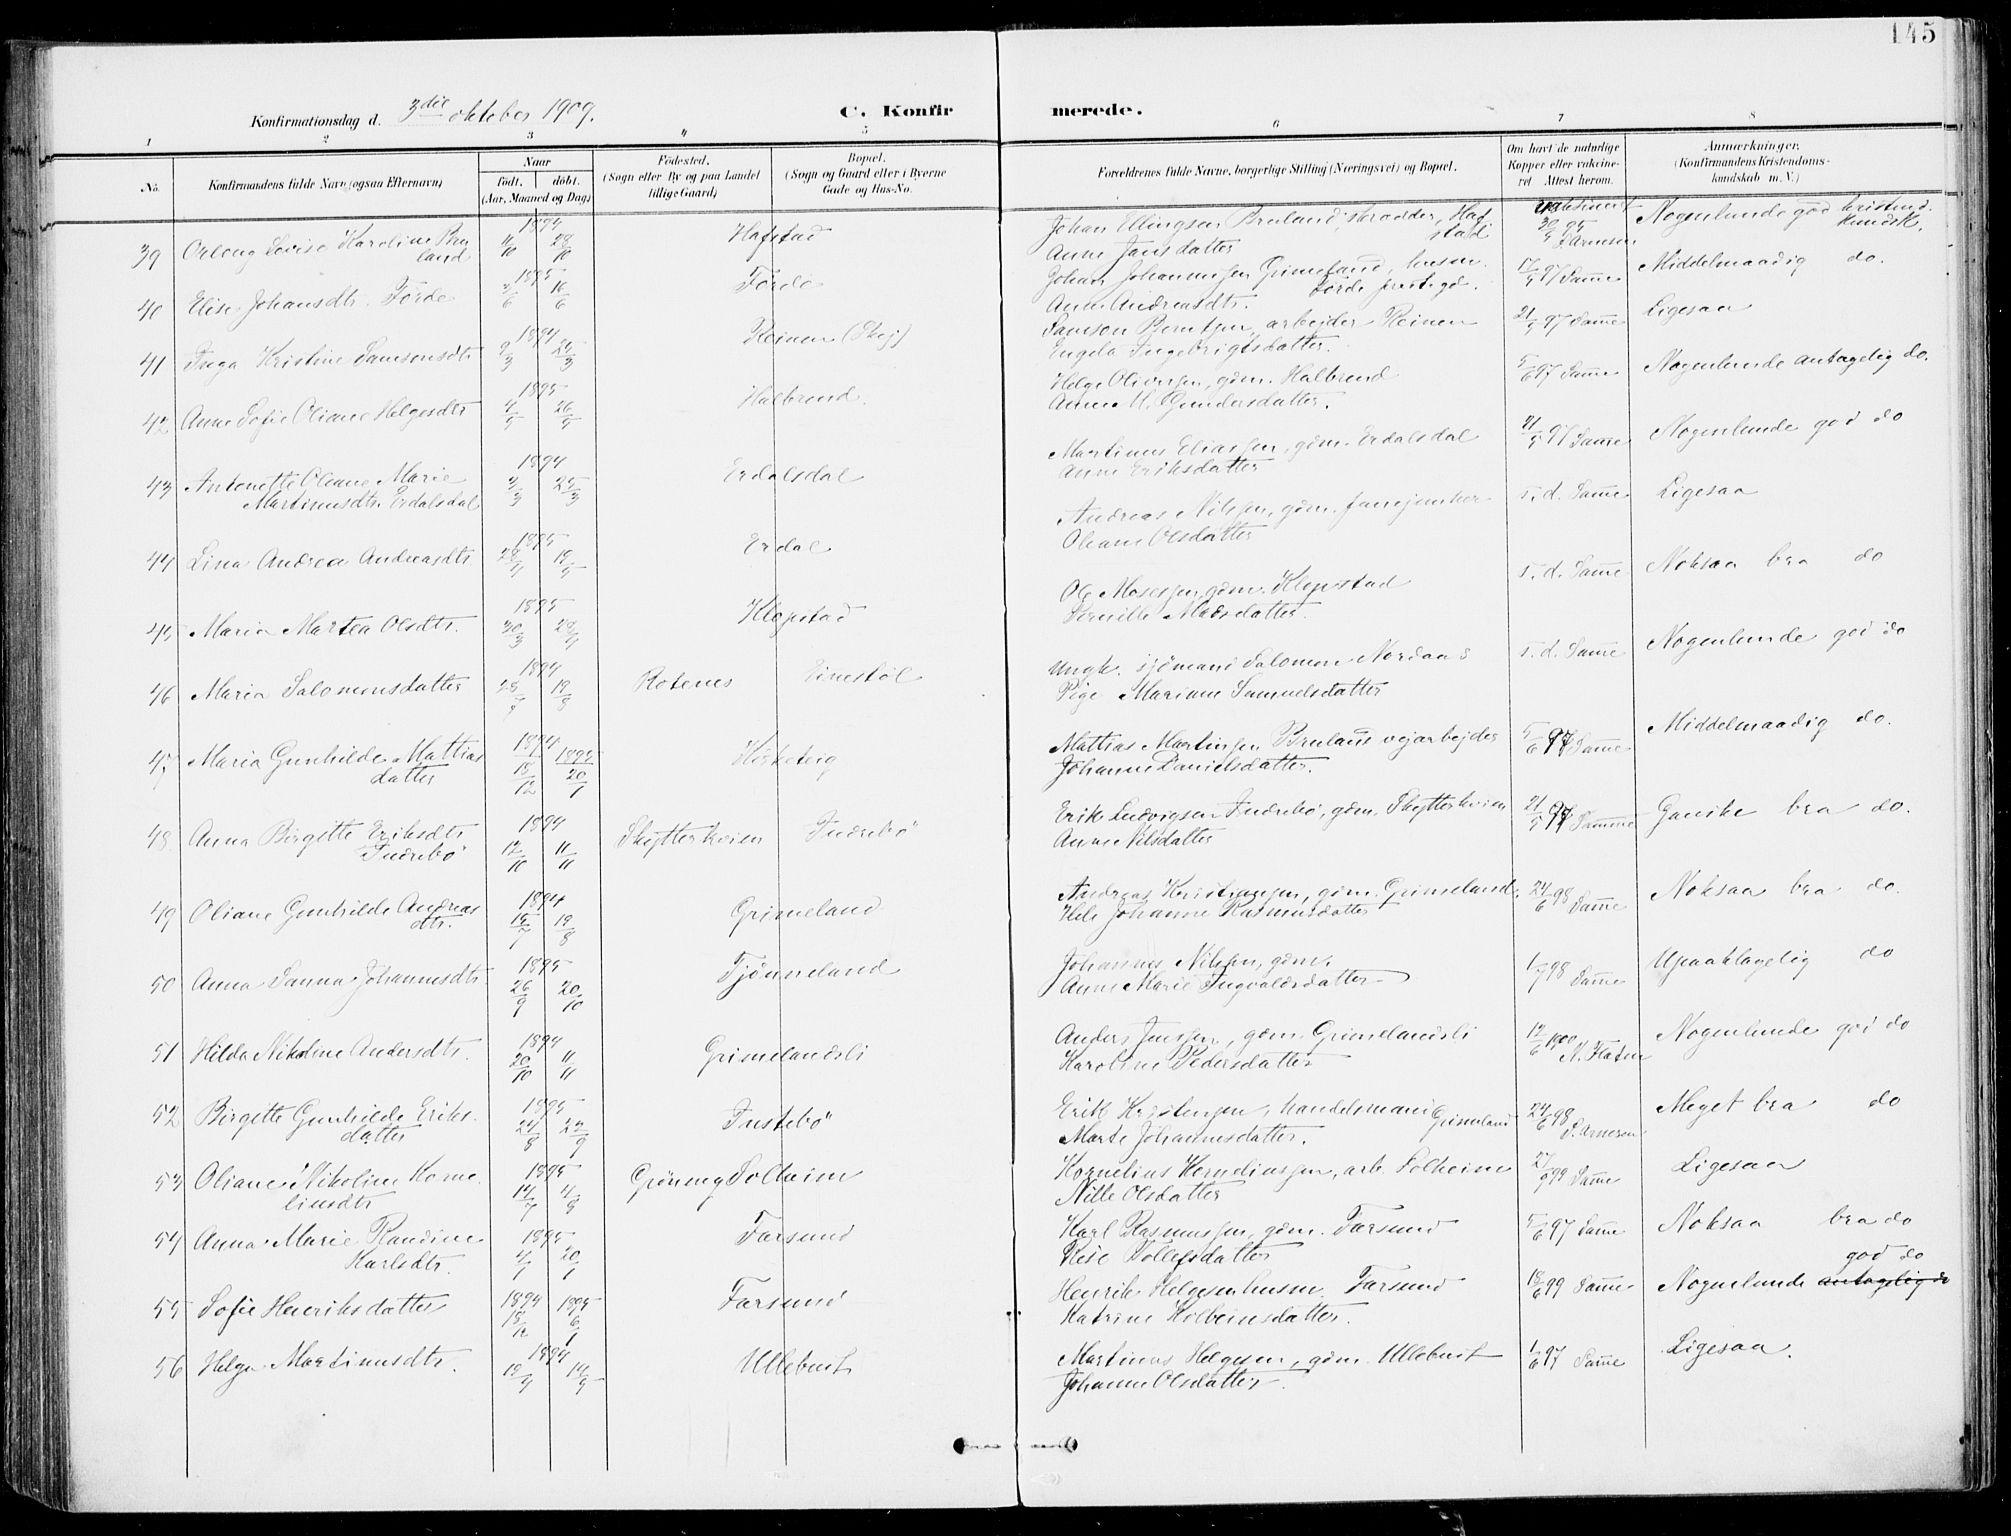 145
Konfirmationsdag d. 3die oktober 1909.
C. Konfirmerede.
1 2 3 4 5 6 7 8
No.
Konfirmandens fulde Navn (ogsaa Efternavn)
Naar
født. døbt.
(Aar, Maaned og Dag)
Fødested.
(Sogn eller By og paa Landet
tillige Gaard)
Bopæl.
(Sogn og Gaard eller i Byerne
Gade og Hus-No.
Forældrenes fulde Navne, borgerlige Stilling (Næringsvei) og Bopæl.
Om havt de naturlige
Kopper eller vaccine-
ret Attest herom.
Anmærkninger.
(Konfirmandens Kristendoms-
kundskab m. V.)
39 Lovise Karoline Bru
land
1894 11/10 28/10
Hafstad
Johan Ellingsen Bruland, skrædder, Haf
stad
Anne Jansdatter
Nogenlunde god kristend.
kundsk.
40 Elise Johansdtr. Førde
1895 2/6 16/6
Førde
Johan Johannessen Grimeland, husm.
Førde prestegd.
Anne Andreasdtr.
17/5 97 Samme
Middelmaadig do.
41 Inga Kristine Samsonsdtr
1894 9/3 25/3
Reinen (Skej)
Samson Berntsen, arbejder Reinen
Engela Ingebrigtsdatter.
21/5 97 Samme
Ligesaa
42 Anne Sofie Oliane Helgesdtr
1895 4/5 26/5
Halbrend.
Helge Oliversen, gdm. Halbrend
Anne M. Gundersdatter.
5/6 97 Samme
Nogenlunde antagelig do.
43 Antonette Oliane Marie
Martinusdtr. Erdalsdal
1894 3/3 25/3
Erdalsdal
Martinus Eliassen, gdm. Erdalsdal
Anne Eriksdatter
21/5 97 Samme
Nogenlunde god do
44 Lina Andrea Andreasdtr
1895 28/4 19/5
Erdal
Andreas Nilsen, gdm. fanejunker
Oliane Olsdatter
s. d. Samme
Ligesaa
45 Maria Martea Olsdtr.
1895 30/3 28/4
Klopstad
Ole Mosessen, gdm. Klopstad
Pernille Madsdatter.
s. d. Samme
Noksaa bra do
46 Maria Salomonsdatter
1894
Rotenes
Vinestøl
Ungk. sjømand Salomon Nordaas
Pige Mariane Samuelsdatter
s. d. Samme
Nogenlunde god do
47 Maria Gunhilde Mattias
datter
1894 15/12 1895 20/1
Mattias Martinsen Bruland vejarbejder
Johanne Danielsdatter.
5/6 97 Samme
Middelmaadig do.
48 Anna Birgitte Eriksdtr
Indrebø
1894 12/10 11/11
Skytterkvien
Indrebø
Erik Ludvigsen Indrebø, gdm. Skytterkvien
Anne Nilsdatter
21/5 97 Samme
Ganske bra do.
49 Oliane Gunhilde Andreas
dtr.
1894 15/7 19/8
Grimeland
Andreas Kristiansen, gdm. Grimeland.
Johanne Rasmusdatter
24/6 98 Samme
Noksaa bra do.
50 Anna Sanna Johannesdtr
1895 26/9 20/10
Tjønneland
Johannes Nilsen, gdm.
Anne Marie Ingvaldsdatter
1/7 98 Samme
Upaaklagelig do
51 Hilda Nikoline Andersdtr.
1894 20/10 11/11
Grimelandsli
Anders Jensen, gdm. Grimelandsli
Karoline Pedersdatter
19/6 1900
N. Flaten
Nogenlunde god do
52 Birgitte Gunhilde Eriks
datter
1895 24/8 22/9
Instebø
Erik Kristensen, handelsmand Grimeland
Marte Johannesdatter.
24/6 98
S. Arnesen
Meget bra do
53 Oliane Nikoline Korne
liusdtr
1895 14/7 4/8
Grøneng Solheim
Kornelius Korneliussen, arb. Solheim
Nille Olsdatter
Samme
Ligesaa
54 Anna Marie Randine
Karlsdtr.
1895 4/1 20/1
Farsund
Karl Rasmussen, gdm. Farsund
Tollefsdatter
5/6 97 Samme
Noksaa bra do
55 Sofie Henriksdatter
1894 15/12 1895 6/1
Farsund
Henrik Helgesen husm. Farsund
Katrine Kolbeinsdatter.
18/6 99 Samme
god do
Nogenlunde antagelig do
56 Helga Martinusdtr.
1894
Ullebust
Martinus Helgesen, gdm. Ullebust
Johanne Olsdatter.
1/6 97 Samme
Ligesaa.